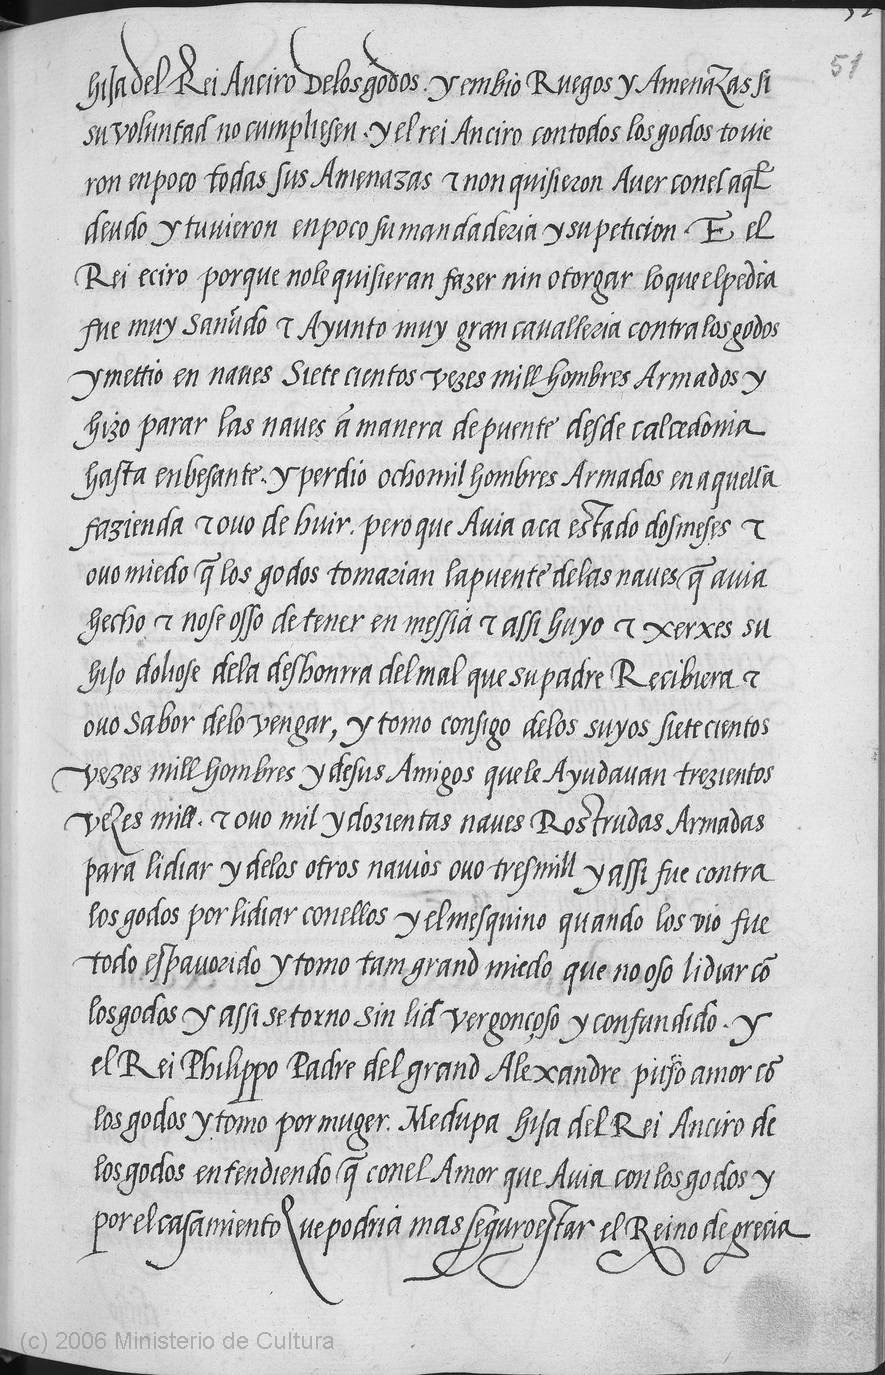 52
51
hija del Rei Anciro Delos godos. y embio Ruegos y Amenazas si
su voluntad no cumpliesen. y el rei Anciro con todos los godos tovie
ron en poco todas sus Amenazas τ non quisieron Aver con el aql̃
deudo y tuvieron en poco su mandaderia y su peticion. E el
Rei eciro porque nole quisieran fazer nin otorgar lo que el pedia
fue muy Sanudo τ Ayunto muy gran cavalleria contra los godos
y mettio en naves Siete cientos vezes mill hombres Armados y
hizo parar las naves a manera de puente desde calcedonia
hasta en besante. y perdio ocho mil hombres Armados en aquella
fazienda τ ovo de huir. pero que Avia aca estado dos meses τ
ovo miedo q̃ los godos tomarian la puente de las naves q̃ avia
hecho τ nose osso detener en messia τ assi huyo τ xerxes su
hijo doliose dela deshonrra del mal que su padre Recibiera τ
ovo Sabor delo vengar, y tomo consigo delos suyos siete cientos
vezes mill hombres y de sus Amigos que le Ayudavan trezientos
vezes mill. τ ovo mil y dozientas naves Rostrudas Armadas
para lidiar y delos otros navios ovo tres mill y assi fue contra
los godos por lidiar con ellos y el mesquino quando los vio fue
todo espavorido y tomo tam grand miedo que no oso lidiar cō
los godos y assi se torno sin lid vergonçoso y confundido. y
el Rei Philippo Padre del grand Alexandre puso amor cō
los godos y tomo por muger. Medupa hija del Rei Anciro de
los godos entendiendo q̃ con el Amor que Avia con los godos y
por el casamiento Que podria mas seguro estar el Reino de grecia
(c) 2006 Ministerio de Cultura